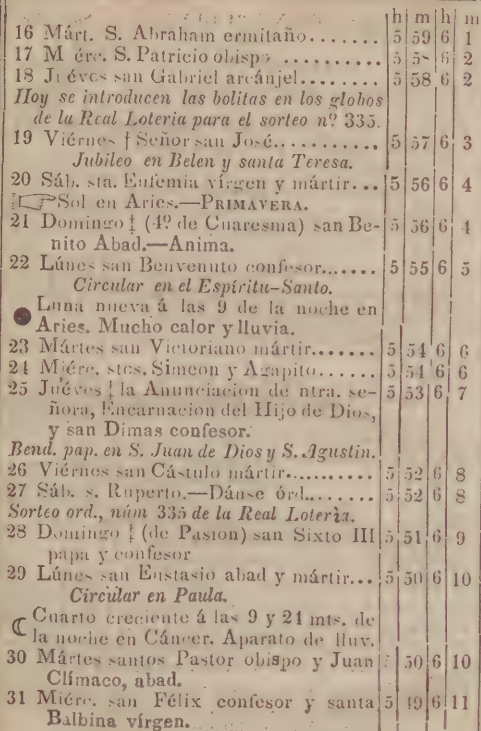 h m h m
16 Márt. S. Abraham ermitaño....... 5 59 6 1
17 Miérc. S. Patricio obispo .......... 5 5 6 2
18 Juéves san Gabriel arcánjel....... 5 58 6 2
Hoy se introducen las bolitas en los globos
de la Real Loteria para el sorteo nº 335.
19 Viérnes † Señor san José.......... 5 57 6 3
Jubileo en Belen y santa Teresa.
20 Sáb. sta. Eufemia vírgen y mártir... 5 56 6 4
☞Sol en Aries.—PRIMAVERA.
21 Domingo ‡ (4º de Cuaresma) san Be- 5 56 6 4
nito Abad.—Anima.
22 Lúnes san Benvenuto confesor...... 5 55 6 5
Circular en el Espíritu-Santo.
Luna nueva á las 9 de la noche en
Aries. Mucho calor y lluvia.
23 Mártes san Victoriano mártir....... 5 54 6 6
24 Miérc. stos. Simeon y Agapito...... 5 54 6 6
25 Juéves ‡ la Anunciacion de ntra. se- 5 53 6 7
ñora, Encarnacion del Hijo de Dios,
y san Dimas confesor.
Bend. pap. en S. Juan de Dios y S. Agustin.
26 Viérnes san Cástulo mártir.......... 5 52 6 8
27 Sáb. s. Ruperto.—Dánse órd....... 5 52 6 8
Sorteo ord., núm 335 de la Real Lotería.
28 Domingo ‡ (de Pasion) san Sixto III 5 51 6 9
papa y confesor
29 Lúnes san Eustasio abad y mártir... 5 50 6 10
Circular en Paula.
Cuarto creciente á las 9 y 21 mts. de
la noche en Cáncer. Aparato de lluv.
30 Mártes santos Pastor obispo y Juan 50 6 10
Clímaco, abad.
31 Miérc. san Félix confesor y santa 5 49 6 11
Balbina vírgen.